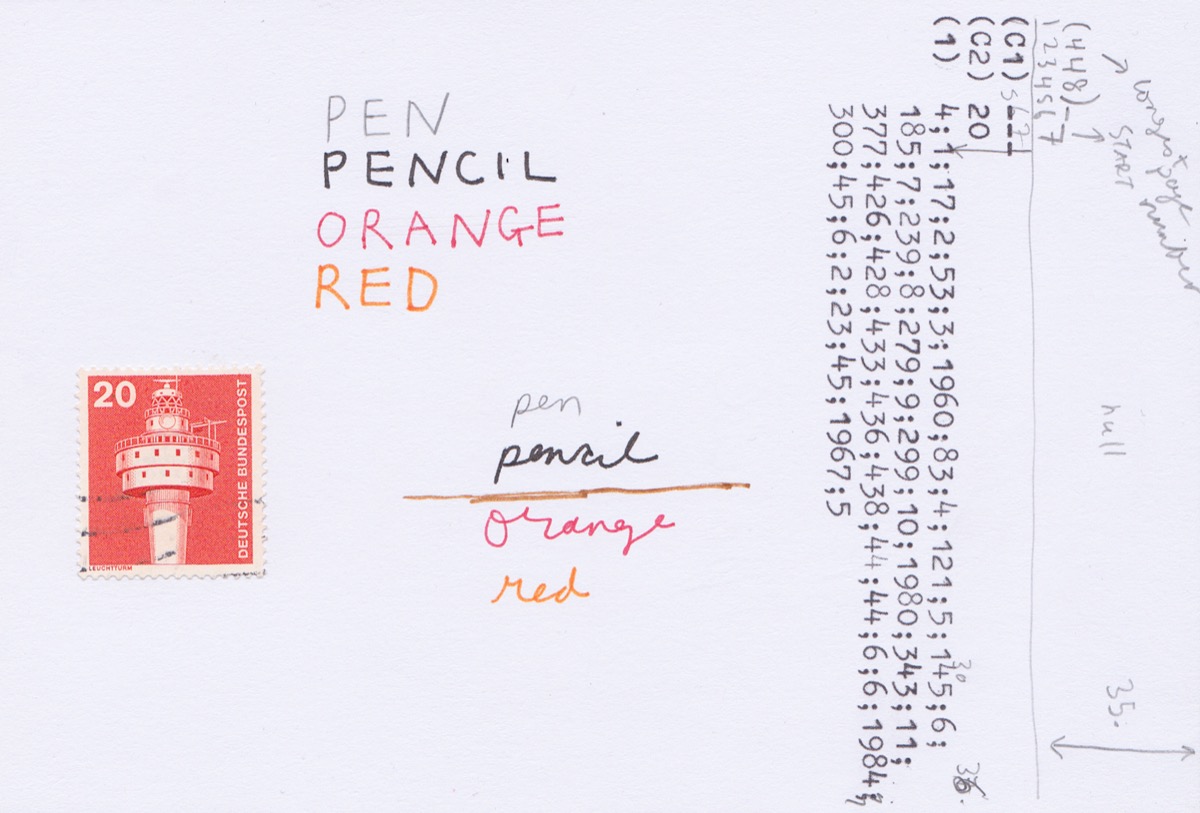 PEN
PENCIL
ORANGE
RED
20
DEUTSCHE BUNDESPOST
LEUCHTTURM
pen
pencil
orange
red
longest page number
START
(448)-
1234567
(C1) ---
567
(C2) 20
(1) 4;1;17;2;53;3;1960;83;4;121;5;145;6;
185;7;239;8;279;9;299;10;1980;343;11;
377;426;428;433;436;438;44;44;6;6;1984;
300;45;6;2;23;45;1967;5
30
36.
null
35.